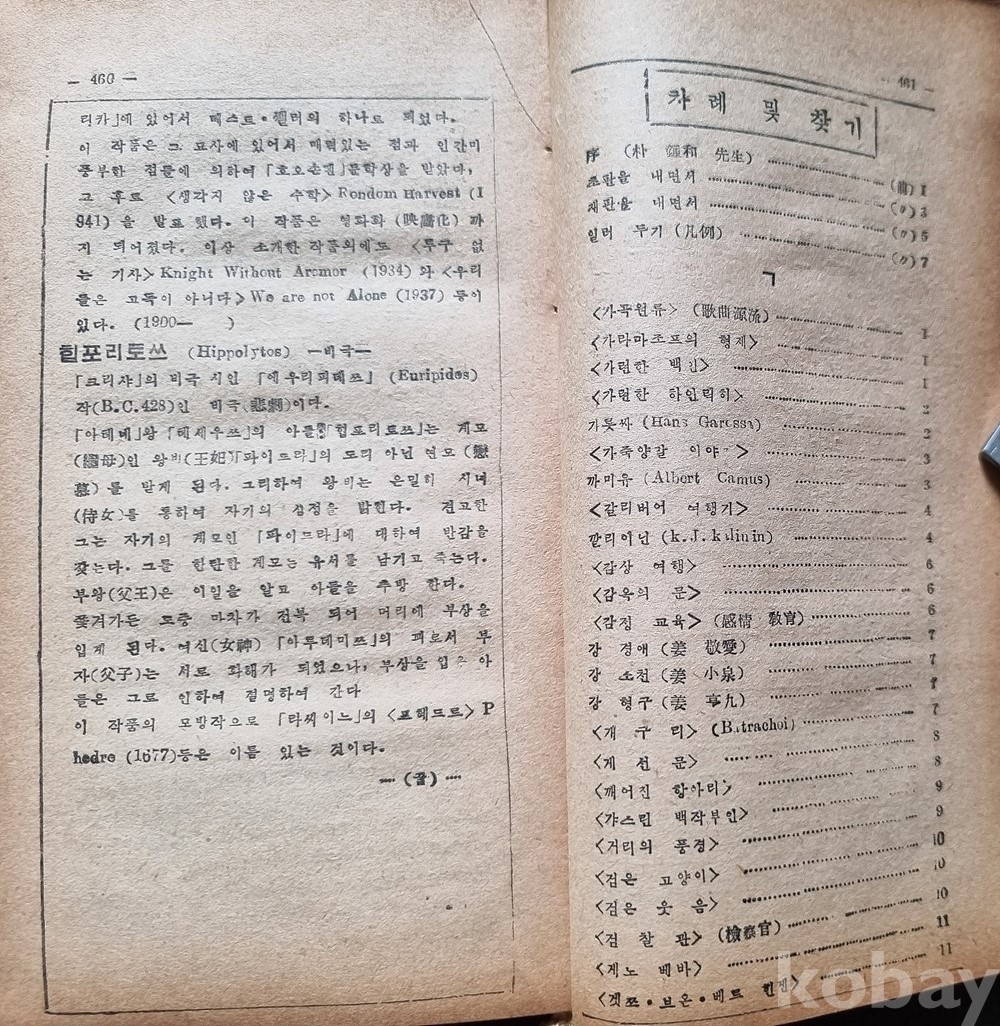 — 460 —
리카」에 있어서 베스트•쎌러의 하나로 되었다.
이 작품은 그 묘사에 있어서 매력있는 점과 인간미
풍부한 점들에 의하여 「호오손덴」문학상을 받았다,
그 후로 <생각지 않은 수확> Rondom Harvest (1
941) 을 발표 했다. 이 작품은 영화화 (映畵化) 까
지 되어졌다. 이상 소개한 작품외에도 <투구 없
는 기사> Knight Without Arcmor (1934) 와 <우리
들은 고독이 아니다> We are not Alone (1937) 등이
있다. (1900— )
힙포리토쓰 (Hippolytos) —비극—
「크리샤」의 비극 시인 「에우리피데쓰」 (Euripides)
작(B.C.428)인 비극(悲劇)이다.
「아테네」왕 「테세우쓰」의 아들 「힙포리토쓰」는 계모
(繼母)인 왕비(王妃)「파이드라」의 도리 아닌 연모 (戀
慕) 를 받게 된다. 그리하여 왕비는 은밀히 시녀
(侍女)를 통하여 자기의 심정을 밝힌다. 견고한
그는 자기의 계모인 「파이드라」에 대하여 반감을
갖는다. 그를 한탄한 계모는 유서를 남기고 죽는다.
부왕(父王)은 이일을 알고 아들을 추방 한다.
쫓겨가든 도중 마차가 전복 되어 머리에 부상을
입게 된다. 여신(女神) 「아투데미쯔」의 괴로서 부
자(父子)는 서로 화해가 되었으나, 부상을 입은 아
들은 그로 인하여 절명하여 간다
이 작품의 모방작으로 「라씨이느」의 <프헤드르> P
hedre (1677)등은 이름 있는 것이다.
…… (끝) ……
461 —
차례 및 찾기
序 (朴 鍾和 先生) …… (前) 1
초판을 내면서 …… (〃) 3
재판을 내면서 …… (〃) 5
일러 두기 (凡例) …… (〃) 7
ㄱ
<가곡원류> (歌曲源流) …… 1
<가라마조프의 형제> …… 1
<가련한 백인> …… 1
<가련한 하인릭히> …… 2
가롯싸 (Hans Garossa) …… 2
<가죽양갈 이야기> …… 3
까미유 (Albert Camus) …… 3
<갈리버어 여행기> …… 4
깔리이닌 (k.J.kalinin) …… 4
<감상 여행> …… 6
<감옥의 문> …… 6
<감정 교육> (感情 敎育) …… 6
강 경애 (姜 敬愛) …… 7
강 소천 (姜 小泉) …… 7
강 형구 (姜 亨九) …… 7
<개 구 리> (Batrachoi) …… 7
<개 선 문> …… 8
<깨어진 항아리> …… 8
<갸스린 백작부인> …… 9
<거리의 풍경> …… 9
<검은 고양이> …… 10
<검은 웃 음> …… 10
<검 찰 관> (檢察官) …… 10
<게노 베바> …… 11
<겟쯔•브온•베르 힌겐> …… 11
kobay